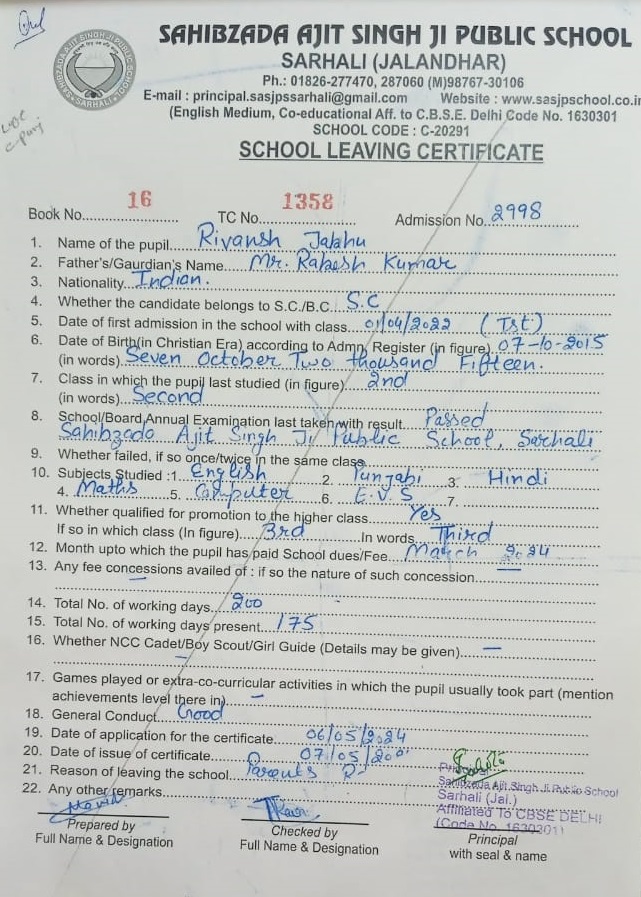 SAHIBZADA AJIT SINGH JI PUBLIC SCHOOL
SARHALI (JALANDHAR)
Ph.: 01826-277470, 287060 (M)98767-30106
E-mail : principal.sasjpssarhali@gmail.com Website : www.sasjpschool.co.in
(English Medium, Co-educational Aff. to C.B.S.E. Delhi Code No. 1630301
SCHOOL CODE : C-20291
SCHOOL LEAVING CERTIFICATE
Book No. 16 TC No. 1358 Admission No. 2998
1. Name of the pupil Rivansh Jakhu
2. Father's/Gaurdian's Name Mr. Rakesh Kumar
3. Nationality Indian.
4. Whether the candidate belongs to S.C./B.C. S.C
5. Date of first admission in the school with class 01/04/2022 (Ist)
6. Date of Birth(in Christian Era) according to Admn. Register (in figure) 07-10-2015
(in words) Seven October Two thousand Fifteen.
7. Class in which the pupil last studied (in figure) 2nd
(in words) Second
8. School/Board Annual Examination last taken with result Passed
Sahibzada Ajit Singh Ji Public School, Sarhali
9. Whether failed, if so once/twice in the same class
10. Subjects Studied :1. English 2. Punjabi 3. Hindi
4. Maths 5. Computer 6. E.V.S 7.
11. Whether qualified for promotion to the higher class Yes
If so in which class (In figure) 3rd In words Third
12. Month upto which the pupil has paid School dues/Fee March 2024
13. Any fee concessions availed of : if so the nature of such concession —
—
14. Total No. of working days 200
15. Total No. of working days present 175
16. Whether NCC Cadet/Boy Scout/Girl Guide (Details may be given) —
—
17. Games played or extra-co-curricular activities in which the pupil usually took part (mention
achievements level there in) —
18. General Conduct Good
19. Date of application for the certificate 06/05/2024
20. Date of issue of certificate 07/05/20
21. Reason of leaving the school Parents
22. Any other remarks
Principal
Sahibzada Ajit Singh Ji Public School
Sarhali (Jal.)
Affiliated To CBSE DELHI
(Code No. 1630301)
Prepared by Checked by Principal
Full Name & Designation Full Name & Designation with seal & name